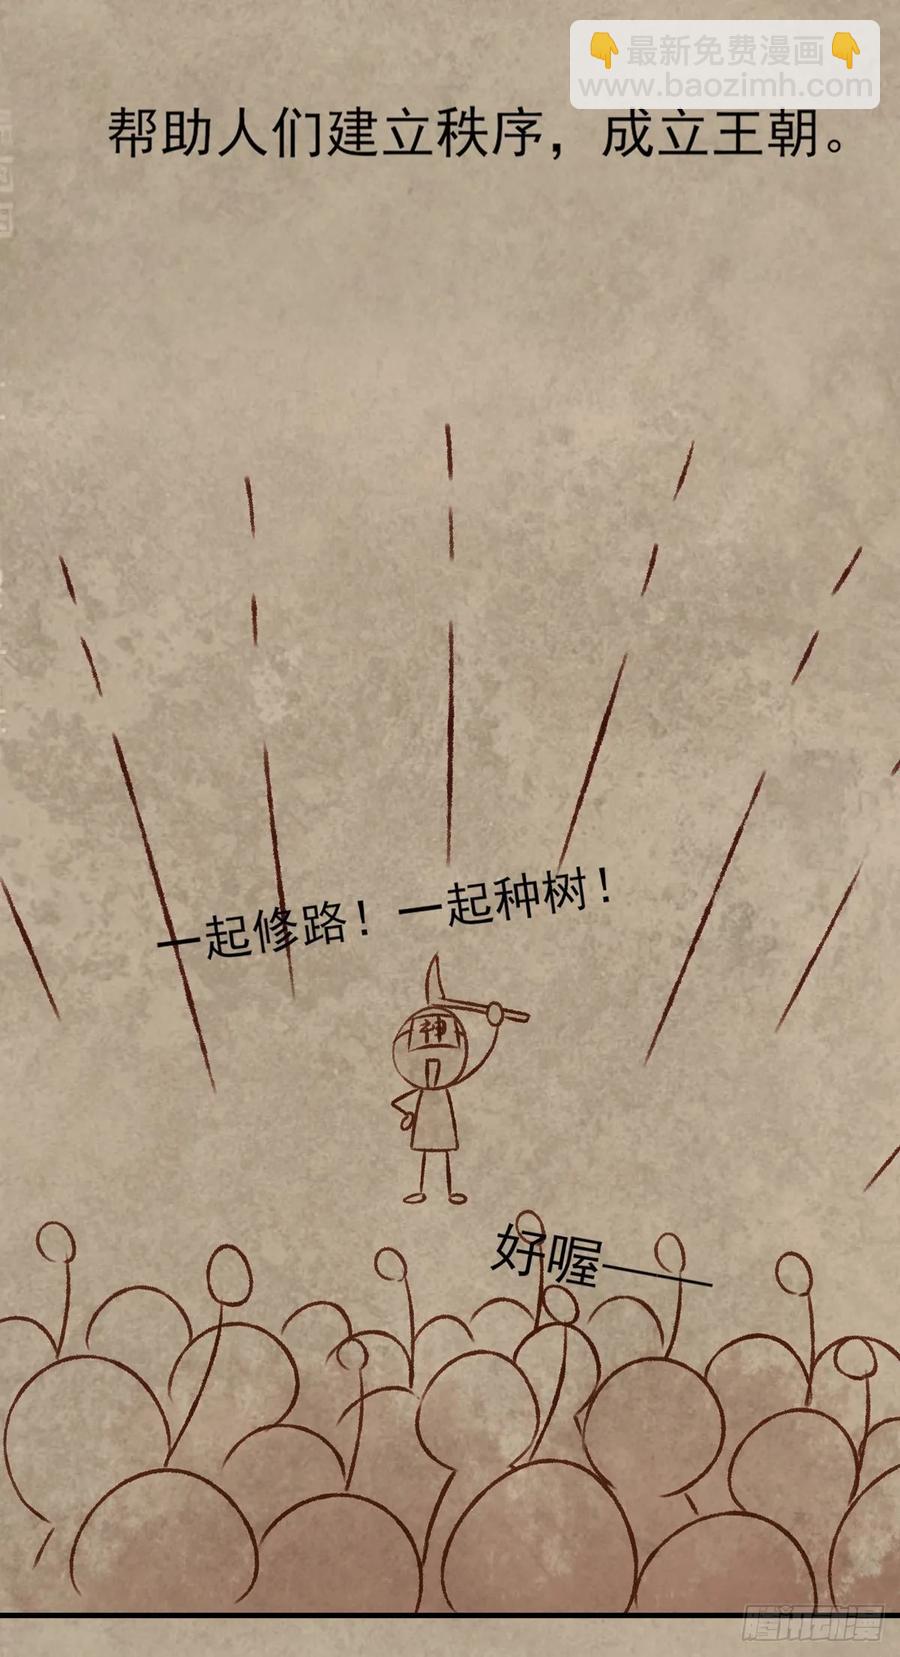 👇最新免费漫画👇
www.baozimh.com
帮助人们建立秩序，成立王朝。
一起修路！一起种树！
神
好喔——
腾讯动漫